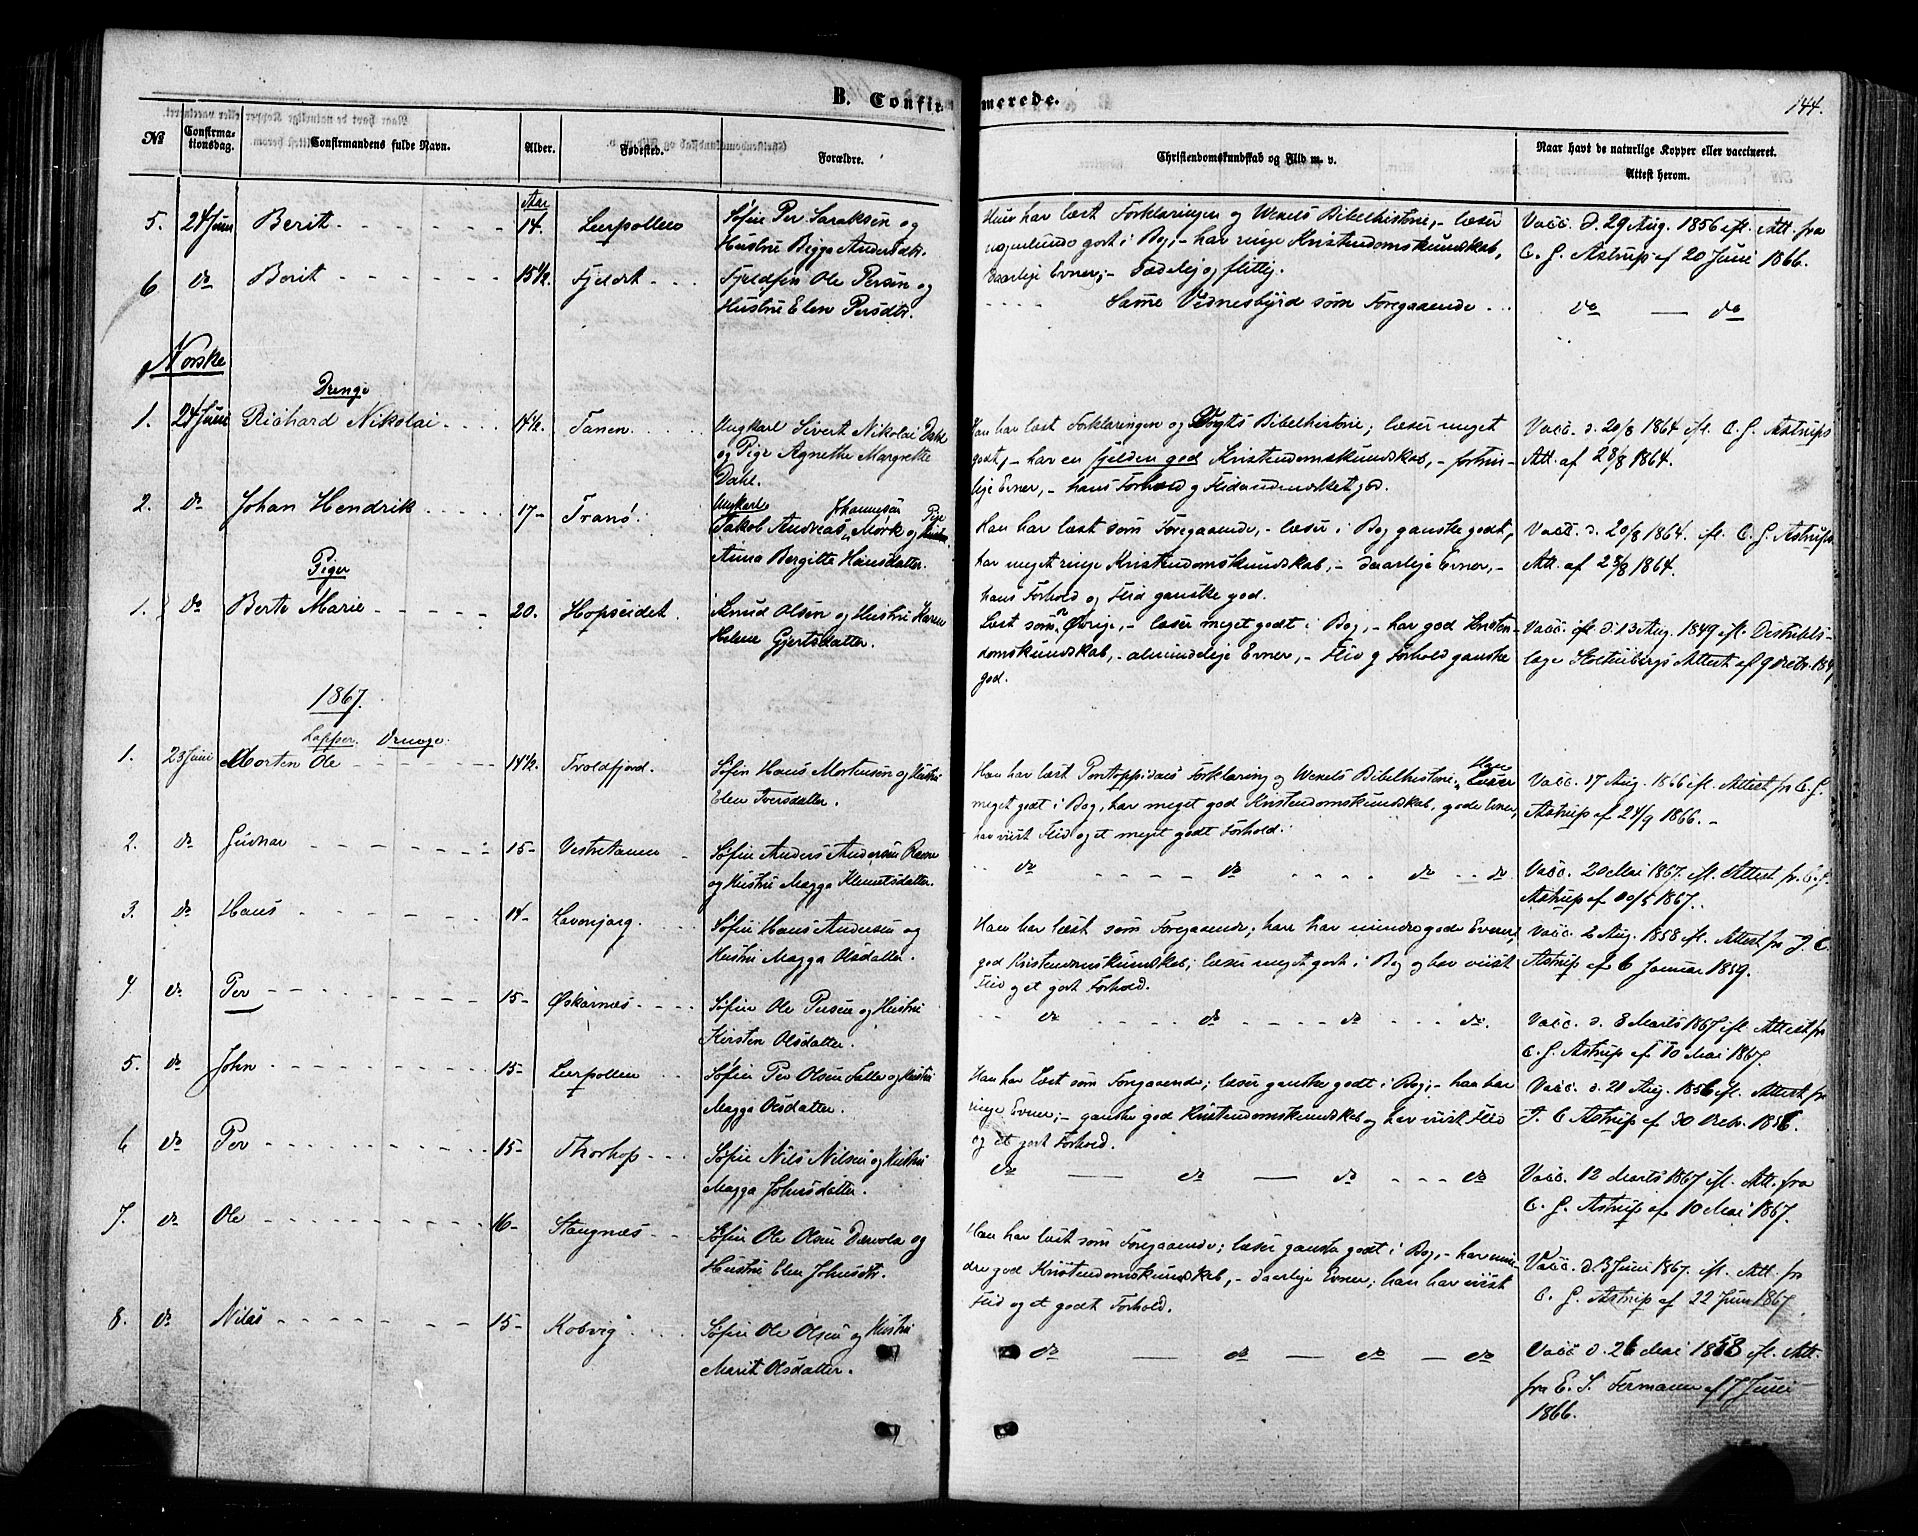 B. Confirmerede.
144.
№
Confirmationsdag.
Confirmandens fulde Navn.
Alder.
Fødested.
Forældre.
Christendomskundskab og Flid m. v.
Naar havt de naturlige Kopper eller vaccineret.
Attest herom.
Aar
5. 24 Juni Berit 14. Leerpollen Søfin Per Saraksen og
Hustru Bigga Andersdtr.
Hun har læst Forklaringen og Wexels Bibelhistorie, - læser
godt i Bog, - har ringe Kristendomskundskab,
daarlige Evner; - Sædelig og flittig.
Vacc. d. 29 Aug. 1856 ifl. Att. fra
C. G. Astrup af 20 Juni 1866.
6 do Berit 15½. Fjeldet Fjeldfin Ole Persen og
Hustru Elen Persdtr.
Samme Vidnesbyrd som Foregaaende
do — do
Norske
Drenge
1. 24 Juni Richard Nikolai 14½. Tanen Ungkarl Sivert Nikolai Dahl
og Pige Agnethe Margrethe
Dahl.
Han har læst Forklaringen og Vogts Bibelhistorie; læser meget
godt, - har en sjelden god Kristendomskundskab, - fortrin-
lige Evner, - hans Forhold og Flid udmærket god.
Vacc. d. 20/8 1864 ifl. C. G. Astrups
Att. af 28/8 1864.
2. do Johan Hendrik 17- Tranø. Ungkarl
Jakob Andreas Johannesen Mørk og Pige
Anna Bergitte Hansdatter.
Han har læst som Foregaaende, - læser i Bog ganske godt,
har meget ringe Kristendomskundskab, - daarlige Evner, -
hans Forhold og Flid ganske god.
Vacc. d. 20/8 1864. ifl. C. G. Astrups
Att. af 28/8 1864.
Piger
1. do Berte Marie 20. Hopseidet. Knud Olsen og Hustru Karen
Helene Gjertsdatter.
Læst som Øvrige, - læser meget godt i Bog, - har god Kristen-
domskundskab, - almindelige Evner, - Flid og Forhold ganske
god.
Vacc. d. 13 Aug. 1849 ifl. Distrikts-
læge Stoltenbergs Attest af 9
1867.
Lapper. Drenge.
1. 23 Juni Morten Ole 14½. Troldfjord. Søfin Hans Mortensen og Hustru
Elen Iversdatter.
Han har læst Pontoppidans Forklaring og Wexels Bibelhistorie. Han læser
meget godt i Bog, har meget god Kristendomskundskab, gode Evner,
har viist Flid og et meget godt Forhold.
Vacc. 17 Aug. 1866 ifl. Attest fr. C. G.
Astrup af 24/9 1866. -
2. do Gudnar 15- Vestretanen Søfin Anders Andersen
og Hustru Magga Klemetsdatter.
do do do do
Vacc. 20 Mai 1867. ifl. Attest fr. C. G.
Astrup af 1867.
3. do Hans 14- Lavonjarg. Søfin Hans Andersen og
Hustru Magga Olsdatter.
Han har læst som Foregaaende; han har mindre gode Evner,
god Kristendomskundskab; læser meget godt i Bog og har viist
Flid og et godt Forhold.
Vacc. 2 Aug. 1858 ifl. Attest fr. J. C.
Astrup af 6 Januar 1859.
4 do Per 15- Øskarnæs Søfin Ole Persen og Hustru
Kirsten Olsdatter.
do do do do.
Vacc. d. 8 Marts 1867 ifl. Attest fr
C. G. Astrup af 10 Mai 1867.
5. do John 15- Leerpollen Søfin Per Olsen og Hustru
Magga Olsdatter.
Han har læst som Foregaaende; læser ganske godt i Bog; - han har
ringe Evner; - ganske god Kristendomskundskab og har viist Flid
og et godt Forhold.
Vacc. d. 21 Aug. 1856 ifl. Attest fr
J. C. Astrup af 30 1856.
6 do Per 15- Thorhop Søfin Nils Nilsen og Hustru
Magga Johnsdatter.
do — do — do do
Vacc. 12 Marts 1867 ifl. Att. fra
C. G. Astrup af 10 Mai 1867.
7. do Ole 16- Stangnæs Søfin Ole Olsen og
Hustru Elen Johnsdtr.
Han har læst som Foregaaende; læser ganske godt i Bog, - har min-
dre god Kristendomskundskab, - daarlige Evner; han har viist
Flid og et godt Forhold.
Vacc. d. 13 Juni 1867. ifl. Att. fr
C. G. Astrup af 22 Juni 1867.
8. do Nilas 15- Kobvig Søfin Ole Olsen og Hustru
Marit Olsdatter.
do — do — do — do
Vacc d. 26 Mai 1858 ifl. Att.
fra E. S. Fermann af 7 Juni
1866.